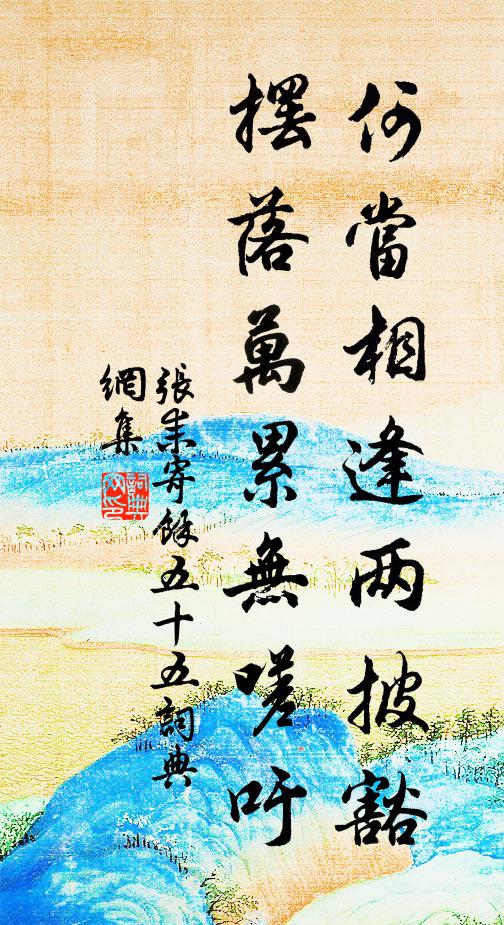 何當相逢兩披豁
擺落萬累無嗟吁
張耒寄餘五十五詞典
網集
詞典